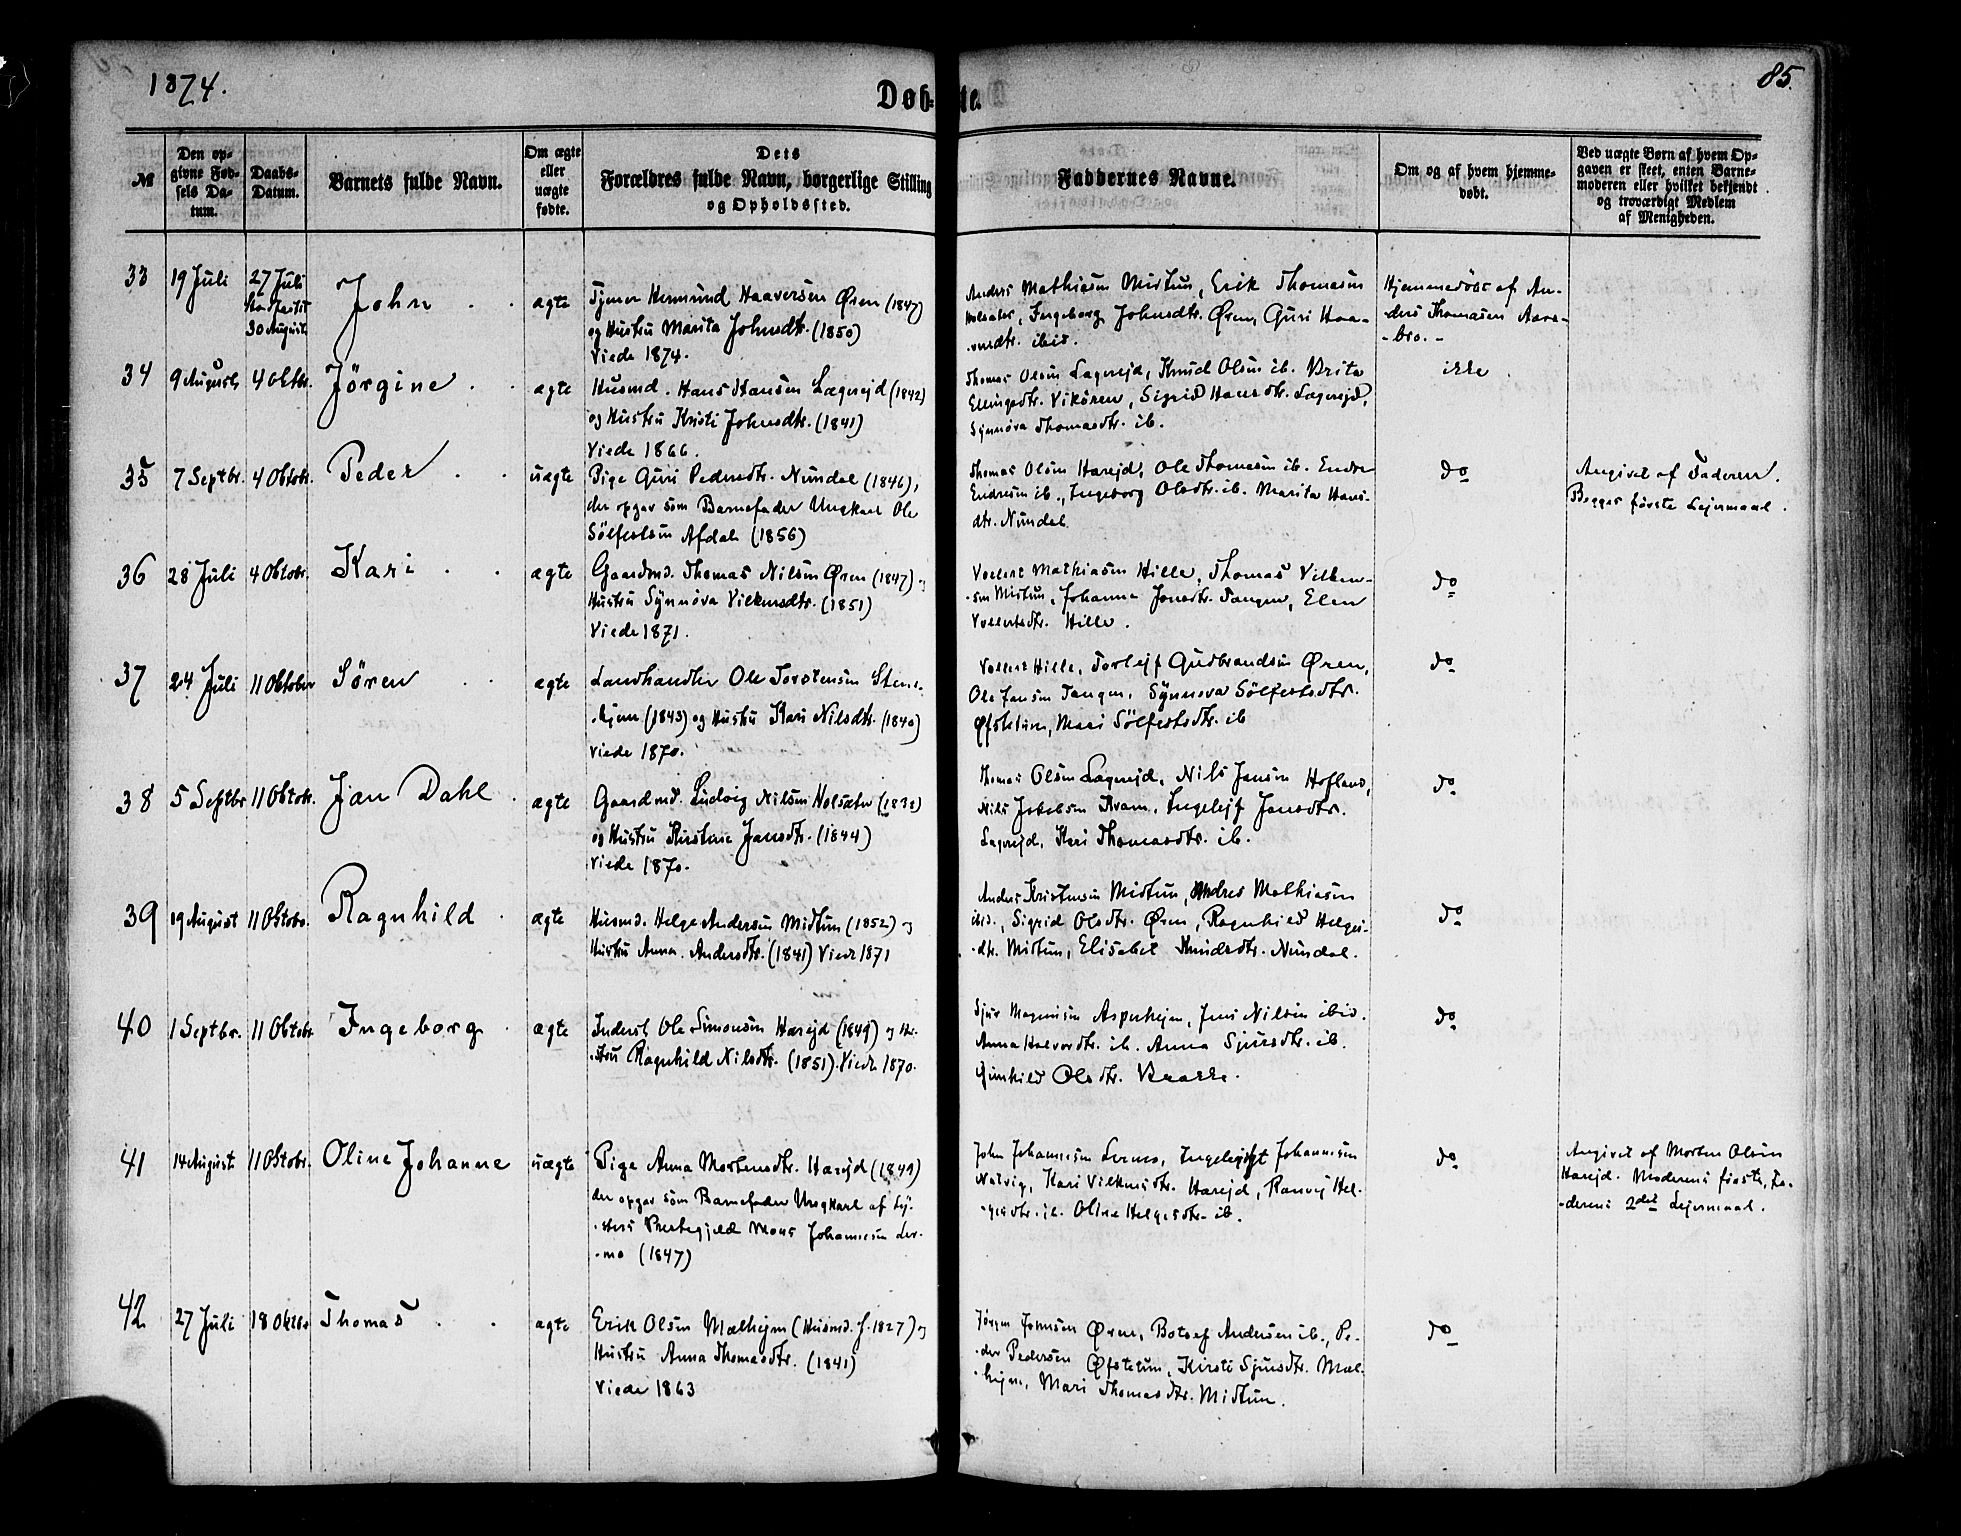 1874.
Døb- te.
85.
№
Den op-
givne Fød-
sels Da-
tum.
Daabs-
Datum.
Barnets fulde Navn.
Om ægte
eller
uægte
fødte.
Dets
Forældres fulde Navn, borgerlige Stilling
og Opholdssted.
Faddernes Navne.
Om og af hvem hjemme-
døbt.
Ved uægte Børn af hvem Op-
gaven er skeet, enten Barne-
moderen eller hvilket bekjendt
og troværdigt Medlem
af Menigheden.
33
19 Juli
27 Juli
Stadfæstet
30 August
John
ægte
Tjener Hermund Haaversen Øren (1847)
og Hustru Marita Johnsdtr. (1850)
Viede 1874.
Anders Mathiasen Midtun, Erik Thomasen
Holsæter, Ingeborg Johnsdtr. Øren, Guri Haa-
-versdtr. ibid.
Hjemmedøbt af An-
-ders Thomasen Aarø-
-bro. -
34
9 August
4 Oktbr.
Jørgine
ægte
Husmd. Hans Hansen Lægrejd (1842)
og Hustru Kristi Johnsdtr. (1841)
Viede 1866.
Thomas Olsen Lægrejd, Knud Olsen ib. Brita
Ellingsdtr. Vikøren, Sigrid Hansdtr. Lægrejd,
Synnøva Thomasdtr. ib.
ikke
35
7 Septbr.
4 Oktobr.
Peder
uægte
Pige Guri Pedersdtr. Nundal (1846),
der opgav som Barnefader Ungkarl Ole
Sølfestsen Afdal (1856)
Thomas Olsen Harejd, Ole Thomasen ib. Endre
Endresen ib., Ingeborg Olsdtr. ib. Marita Hans-
dtr. Nundal
do
Angivet af Faderen.
Begges første Lejermaal.
36
28 Juli
4 Oktobr.
Kari
ægte
Gaardmd. Thomas Nilsen Øren (1847) og
Hustru Synnøva Vilkensdtr. (1851)
Viede 1871.
Vollert Mathiasen Hille, Thomas Vilken-
-sen Midtun, Johanna Jonsdtr. Tangen, Elen
Vollertsdtr. Hille.
do
37
24 Juli
11 Oktober
Søren
ægte
Landhandler Ole Torstensen Stene-
-hjem (1843) og Hustru Kari Nilsdtr. (1840)
viede 1870.
Vollert Hille, Torlejf Gudbrandsen Øren,
Ole Jansen Tangen, Synnøva Sølfestsdtr.
Øfstetun, Mari Sølfestsdtr. ib
do
38
5 Septbr
11 Oktobr.
Jan Dahl
ægte
Gaardmd. Ludvig Nilsen Holsæter (1832)
og Hustru Kirstine Jansdtr. (1844)
Viede 1870.
Thomas Olsen Lægrejd, Nils Jansen Hofland,
Nils Jakobsen Kvam, Ingelejf Jansdtr.
Lægrejd, Kari Thomasdtr. ib.
do
39
19 August
11 Oktobr.
Ragnhild
ægte
Husmd. Helge Andersen Midtun (1852) og
Hustru Anna Andersdtr. (1841) Viede 1871
Anders Kristensen Midtun, Andres Mathiasen
ibid., Sigrid Olsdtr. Øren, Ragnhild Helges-
-dtr. Midtun, Elisabet Knudsdtr. Nundal.
do
40
1 Septbr.
11 Oktobr
Ingeborg
ægte
Inderst Ole Simonsen Harejd (1849) og Hu-
-stru Ragnhild Nilsdtr. (1851). Viede 1870.
Sjur Magnusen Asperhejm, Jens Nilsen ibid.
Anna Halvordtr. ib. Anna Sjursdtr. ib.
Gunhild Olsdtr. Krakke.
do
41
14 August
11 Oktobr.
Oline Johanne
uægte
Pige Anna Mortensdtr. Harejd (1849)
der opgav som Barnefader Ungkarl af Ly-
-sters Præstegjeld Mons Johannesen Ler-
-mo (1847)
John Johannesen Lermo, Johannesen
Natvig, Kari Vilkensdtr. Harejd, Ranvej Hel-
-gesdtr. ib. Oline Helgesdtr. ib.
do
Angivet af Morten Olsen
Harejd. Moderens første, Fa-
-derens 2det Lejermaal.
42
27 Juli
18 Oktbr
Thomas
ægte
Erik Olsen Mælhejm (Husmd. f. 1827) og
Hustru Anna Thomasdtr. (1841)
Viede 1863
Jørgen Johnsen Øren, Botolf Andersen ib., Pe-
-der Pedersen Øfstetun, Kirsti Sjursdtr. Mæl-
-hejm, Mari Thomasdtr. Midtun.
do